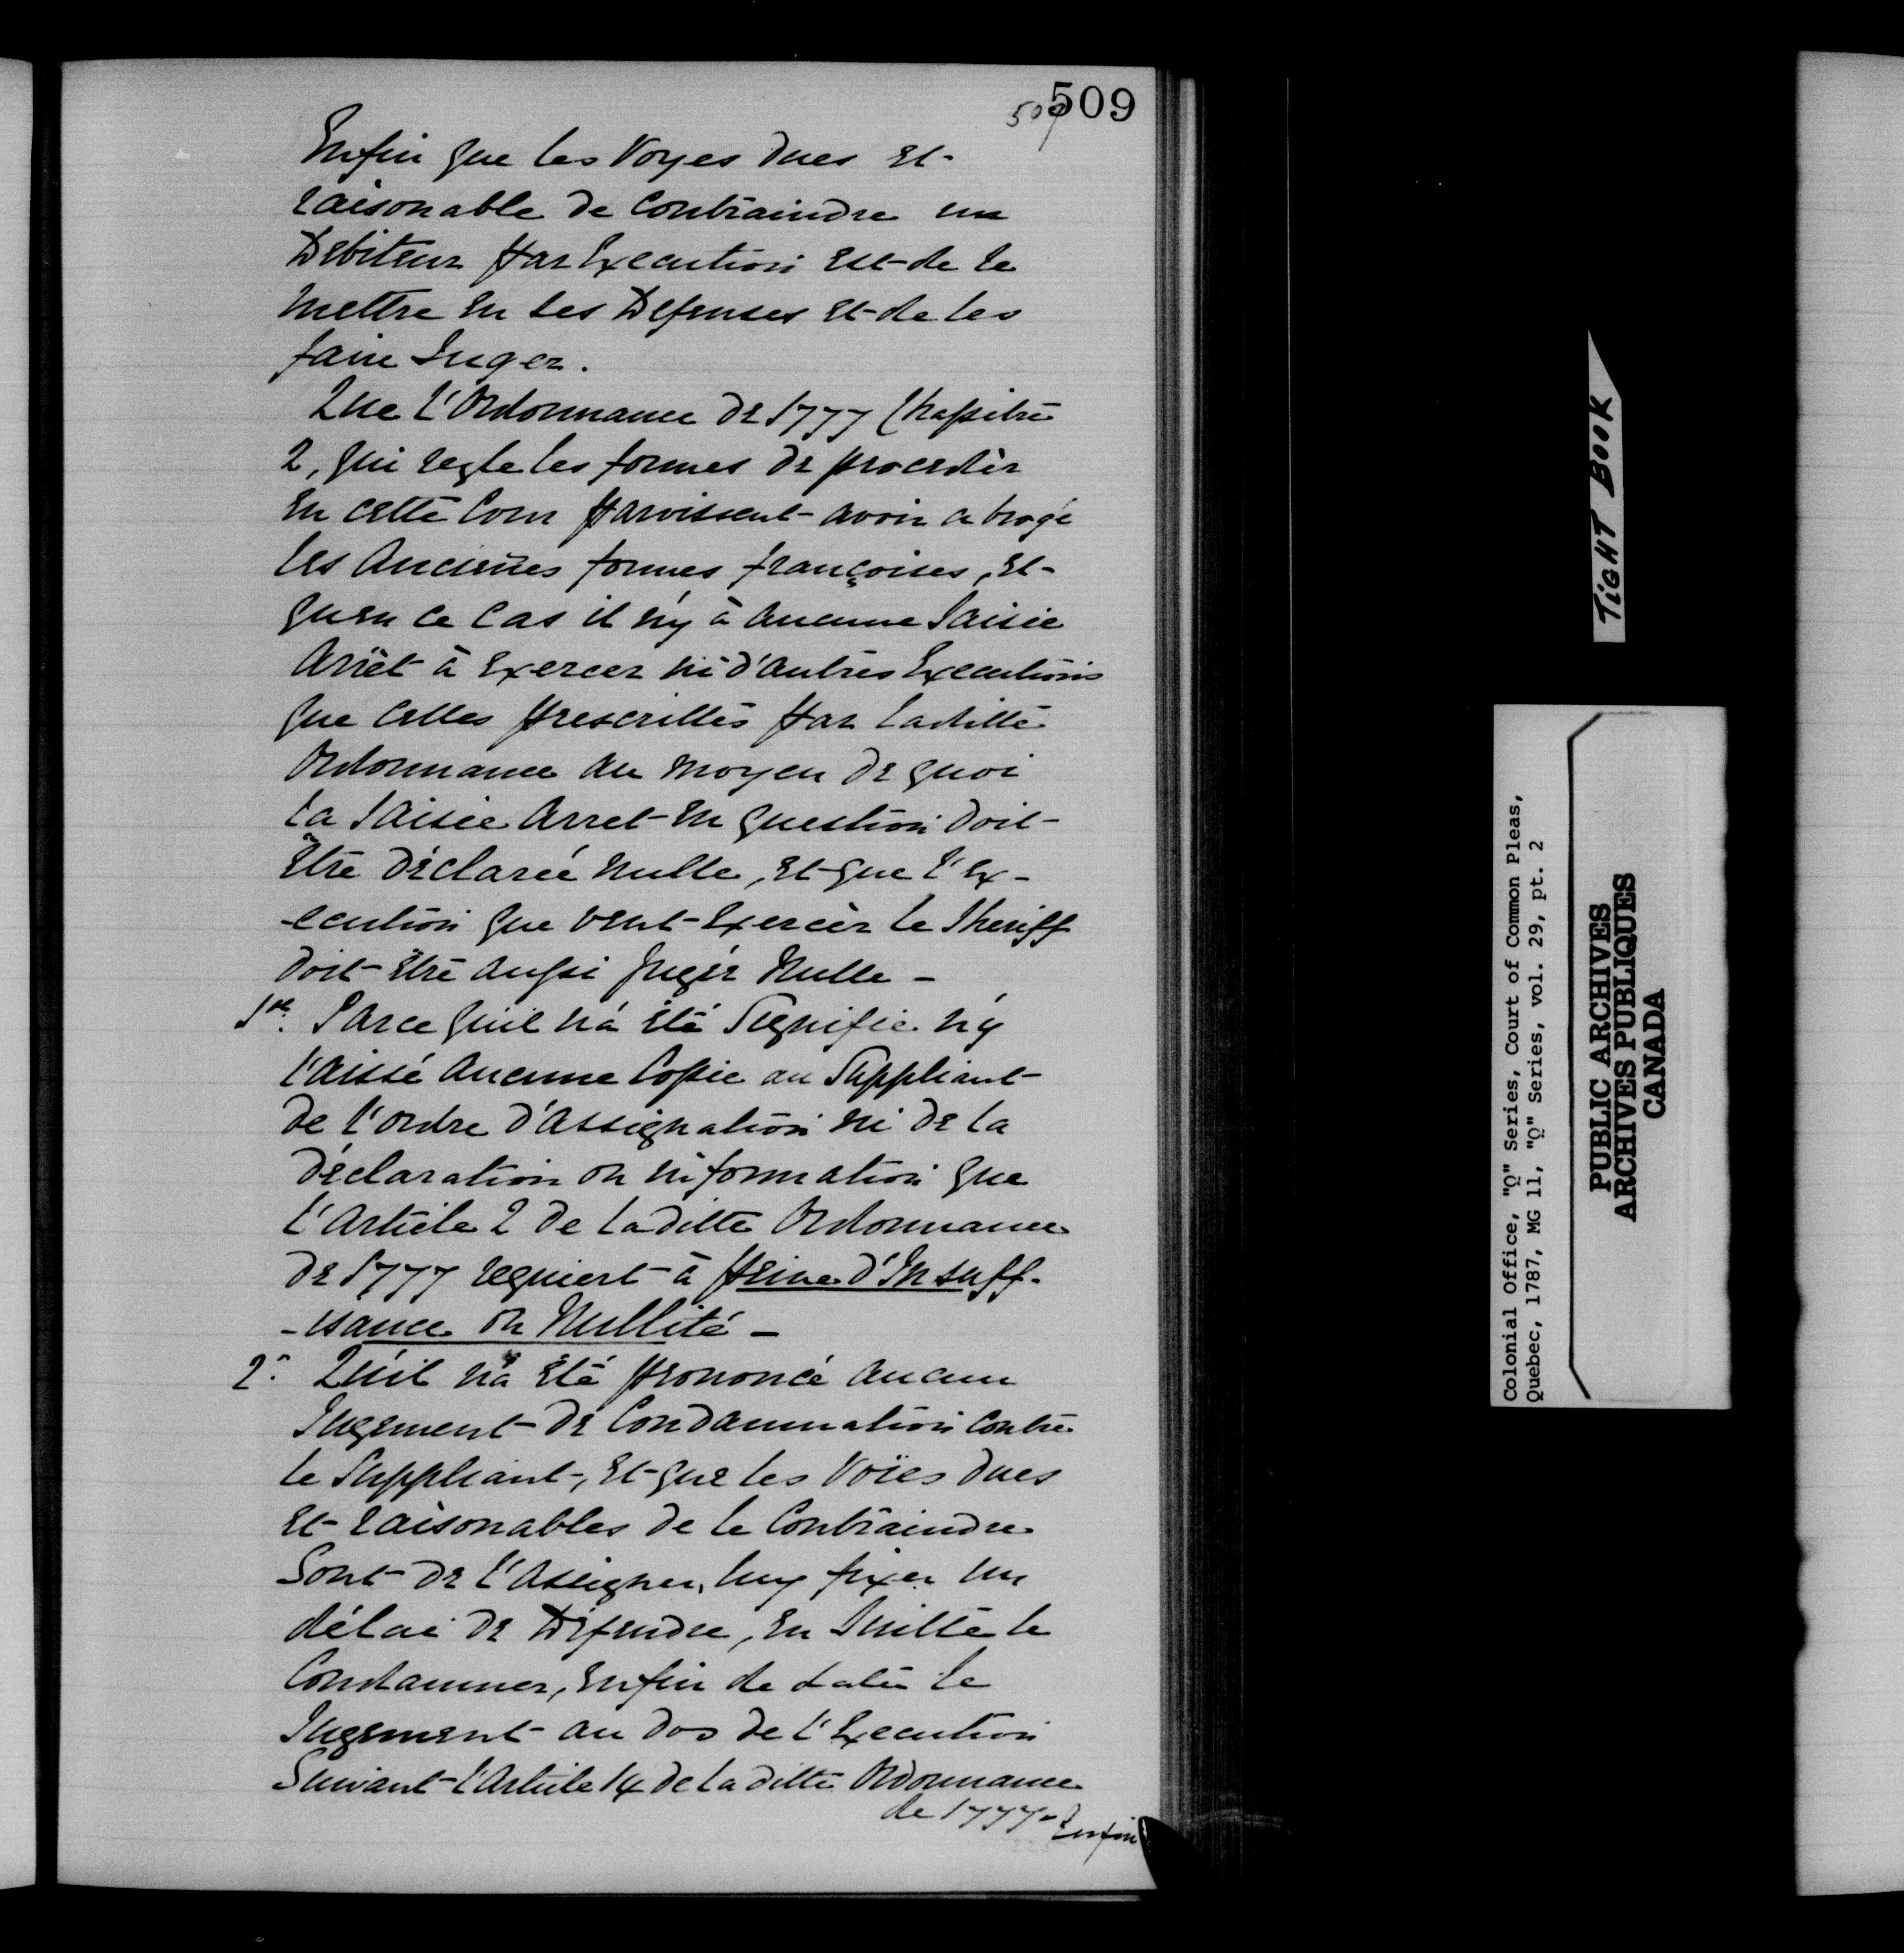 509
507
Enfin que les Voyes dues et
raisonable de Contraindre un
Debiteur par Execution est de le
mettre en ses Defenses et de les
faire Juger.
Que l'Ordonnance de 1777 Chapitre
2, qui regle les formes de proceder
en cette Cour paroissent avoir abrogé
les Anciennes formes françoises, et
qu'en ce Cas il n'y à aucune Saisie
Arrêt à Exercer ni d'autres Executions
que celles prescrittes par laditte
Ordonnance au moyen de quoi
la Saisie Arret en question doit
être déclarée nulle, et que l'Ex-
-ecution que veut Exercer le Sheriff
doit être aussi Jugér Nulle -
1re. Parce qu'il n'a été Signifié n'y
laissé aucune Copie au Suppliant
de l'ordre d'assignation ni de la
déclaration ou information que
l'Article 2 de laditte Ordonnance
de 1777 requiert à peine d'Insuff-
-isance ou Nullité -
2°. Qu'il n'a été prononcé aucun
Jugement de Condamnation Contre
le Suppliant, et que les Voïes dues
et raisonables de le Contraindre
Sont de l'Assigner, luy fixer un
délai de Défendre, en Suitte le
Condamner, enfin de dater le
Jugement au dos de l'Execution
Suivant l'Article 14 de la ditte Ordonnance
de 1777- Enfin
TIGHT BOOK
Colonial Office, "Q" Series, Court of Common Pleas,
Quebec, 1787, MG 11, "Q" Series, vol. 29, pt. 2
PUBLIC ARCHIVES
ARCHIVES PUBLIQUES
CANADA